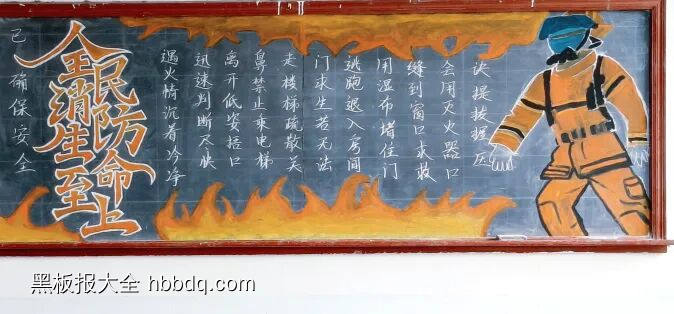 己确保安全
全民
消防
生命
至上
遇火情沉着冷净
迅速判断尽快
离开低姿捂口
鼻禁止乘电梯
走楼梯疏散关
门求生若无法
逃跑退入房间
用湿布堵住门
缝到窗口求救
会用灭火器口
诀提拔握压
黑板报大全 hbbdq.com